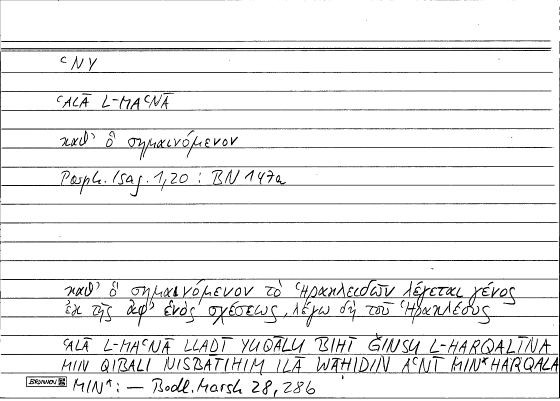 ꜤNY
ꜤALĀ L-MAꜤNĀ
καθ' ὃ σημαινόμενον
Porph. Isag. 1,20 : BN 147a
καθ' ὃ σημαινόμενον τὸ Ἡρακλειδῶν λέγεται γένος
ἐκ τῆς ἀφ' ἑνὸς σχέσεως, λέγω δὴ τοῦ Ἡρακλέους
ꜤALĀ L-MAꜤNĀ LLADĪ YUQĀLU BIHĪ ĞINSU L-HARQALĪNA
MIN QIBALI NISBATIHIM ILĀ WĀHIDIN AꜤNĪ MIN* HARQALA
BRUNNEN MIN*: — Bodl. Marsh 28, 28b